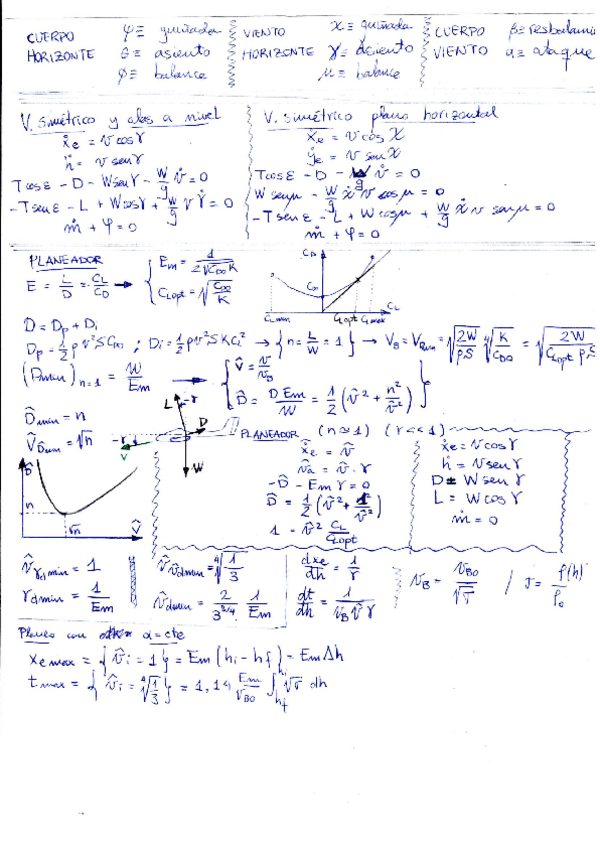 CUERPO HORIZONTE
ψ ≡ guiñada
θ ≡ asiento
φ ≡ balance
VIENTO HORIZONTE
χ ≡ guiñada
γ ≡ asiento
μ ≡ balance
CUERPO VIENTO
β ≡ resbalamie
α ≡ ataque
V. simétrico y alas a nivel
ẋe = v cos γ
ḣ = v sen γ
T cos ε − D − W sen γ − W/g v̇ = 0
−T sen ε − L + W cos γ + W/g v γ̇ = 0
ṁ + φ = 0
V. simétrico plano horizontal
ẋe = v cos χ
ẏe = v sen χ
T cos ε − D − W/g v̇ = 0
W sen μ − W/g χ̇ v cos μ = 0
−T sen ε − L + W cos μ + W/g χ̇ v sen μ = 0
ṁ + φ = 0
PLANEADOR
E = L/D = CL/CD → { Em = 1/(2√(CD0 K))
CLopt = √(CD0/K)
CD
CD0
CLmin CLopt CLmax CL
D = Dp + Di
Dp = 1/2 ρ v² S CD0 ; Di = 1/2 ρ v² S K CL² → { n = L/W = 1 } → VB = VDmin = √(2W/ρS) ⁴√(K/CD0) = √(2W/(CLopt ρS
(Dmin)n=1 = W/Em → { V̂ = v/vB
D̂ = D Em/W = 1/2 (v̂² + n²/v̂²) }
D̂min = n
V̂Dmin = √n
L −γ D
−γ V W
PLANEADOR (n≃1) (γ<<1)
D̂
n
√n V̂
ẋe = v̂
v̂a = v̂ · γ
−D̂ − Em γ = 0
D̂ = 1/2 (v̂² + 1/v̂²)
1 = v̂² CL/CLopt
ẋe = v cos γ
ḣ = v sen γ
D = W sen γ
L = W cos γ
ṁ = 0
v̂γdmin = 1
γdmin = 1/Em
v̂vdmin = ⁴√(1/3)
v̂dmin = 2/3^(3/4) 1/Em
dxe/dh = 1/γ
dt/dh = 1/(vB v̂ γ)
vB = vB0/√σ / σ = ρ(h)/ρ0
Planeo con α = cte
xe max = { v̂i = 1 } = Em (hi − hf) = Em Δh
tmax = { v̂i = ⁴√(1/3) } = 1,14 Em/vB0 ∫hf hi √σ dh